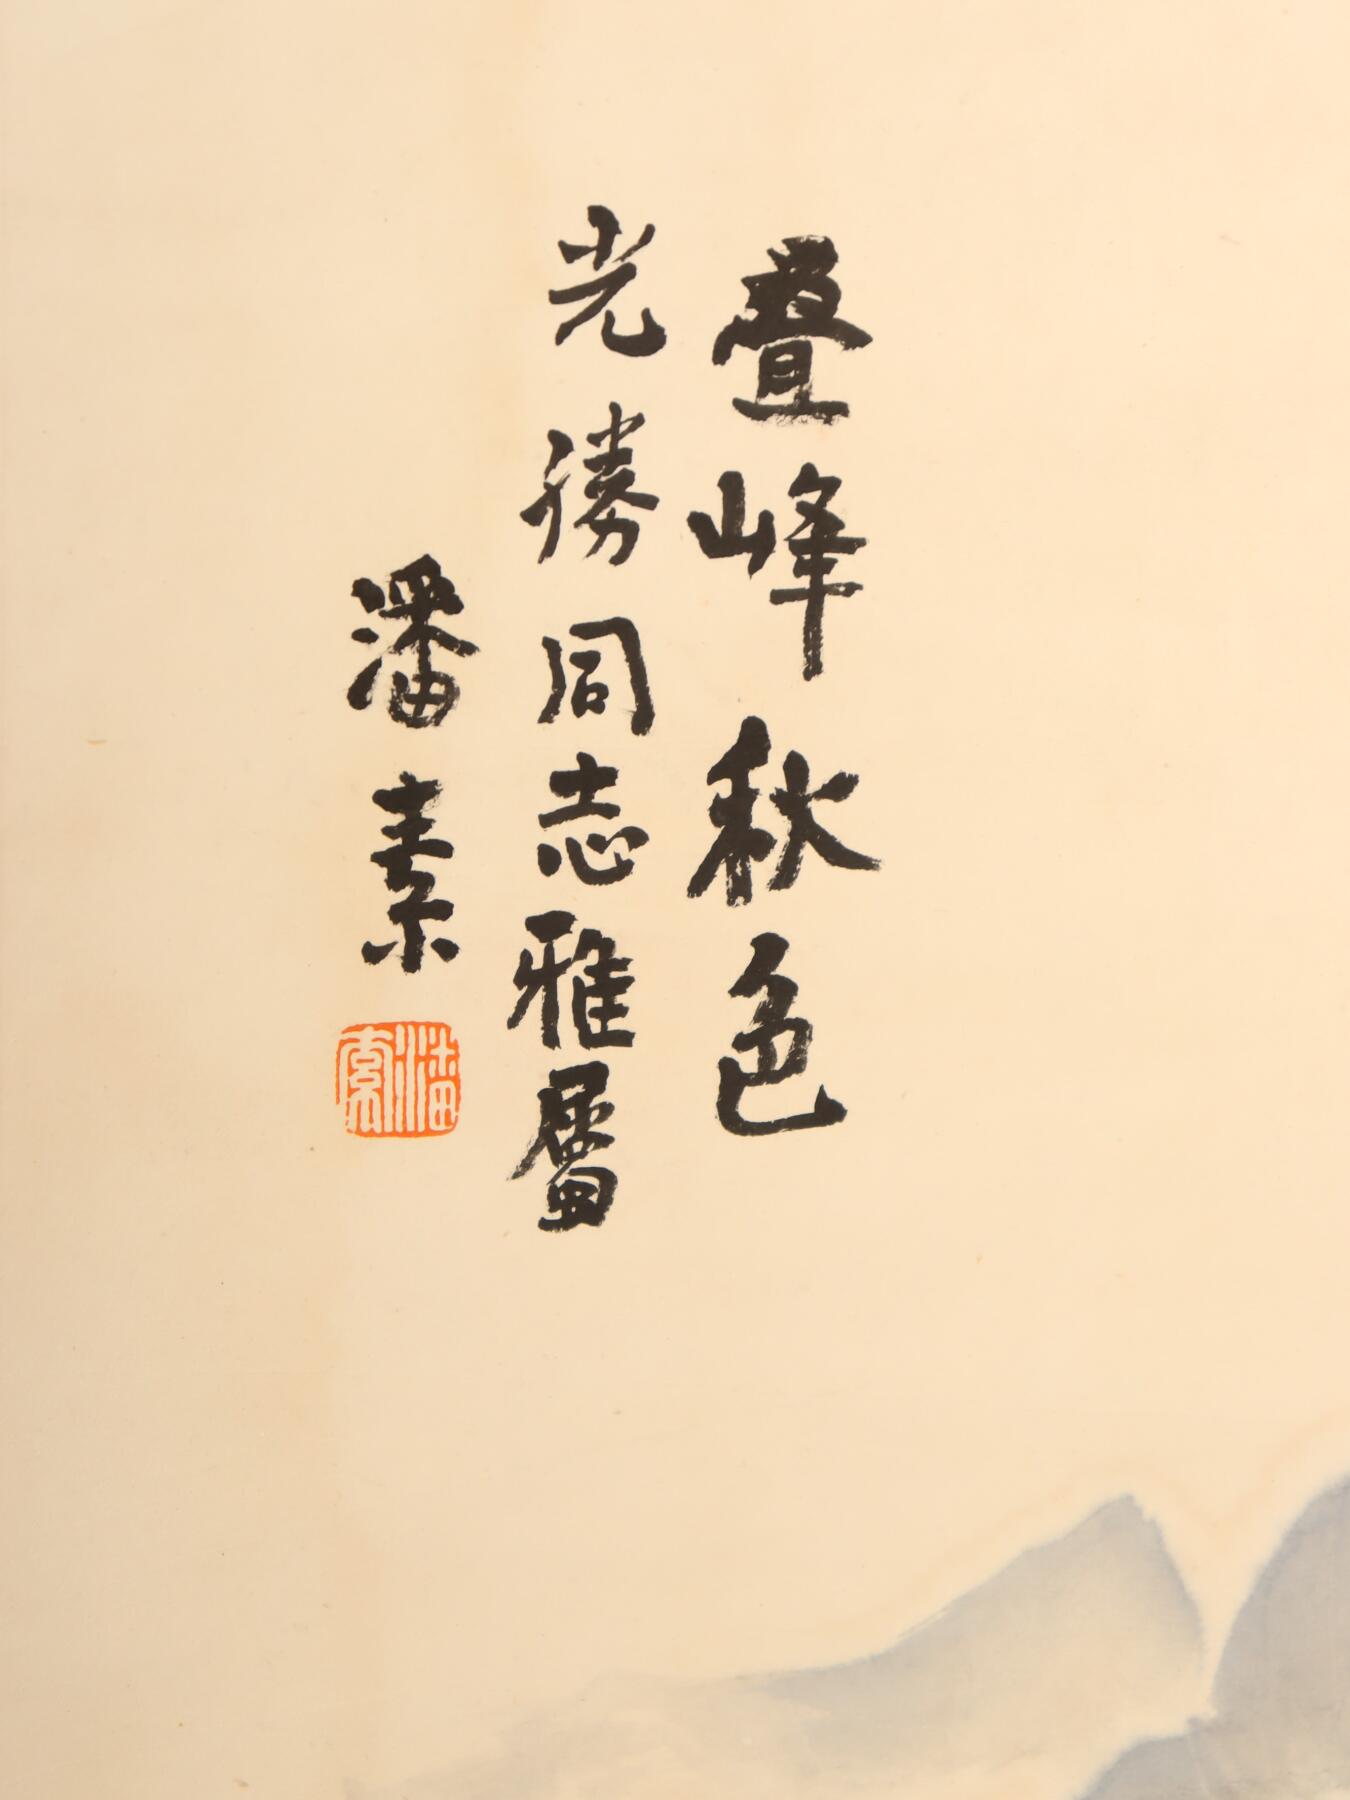 叠峰秋色
光勝同志雅屬
潘素
潘素